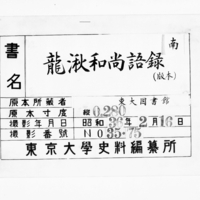 書名
龍湫和尚語録
(版本)
南
原本所蔵者 東大図書館
原本寸度 縦0.280
撮影年月日 昭和36年2月16日
撮影番号 NO.35-75
東京大學史料編纂所